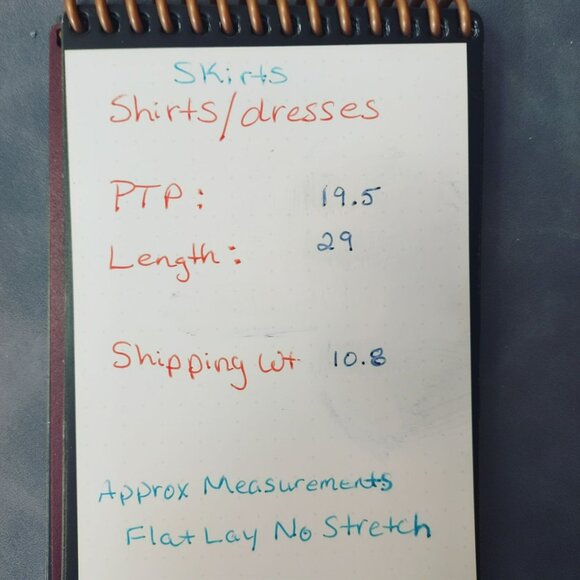 Skirts
Shirts/dresses
PTP: 19.5
Length: 29
Shipping Wt 10.8
Approx Measurements
Flat Lay No Stretch